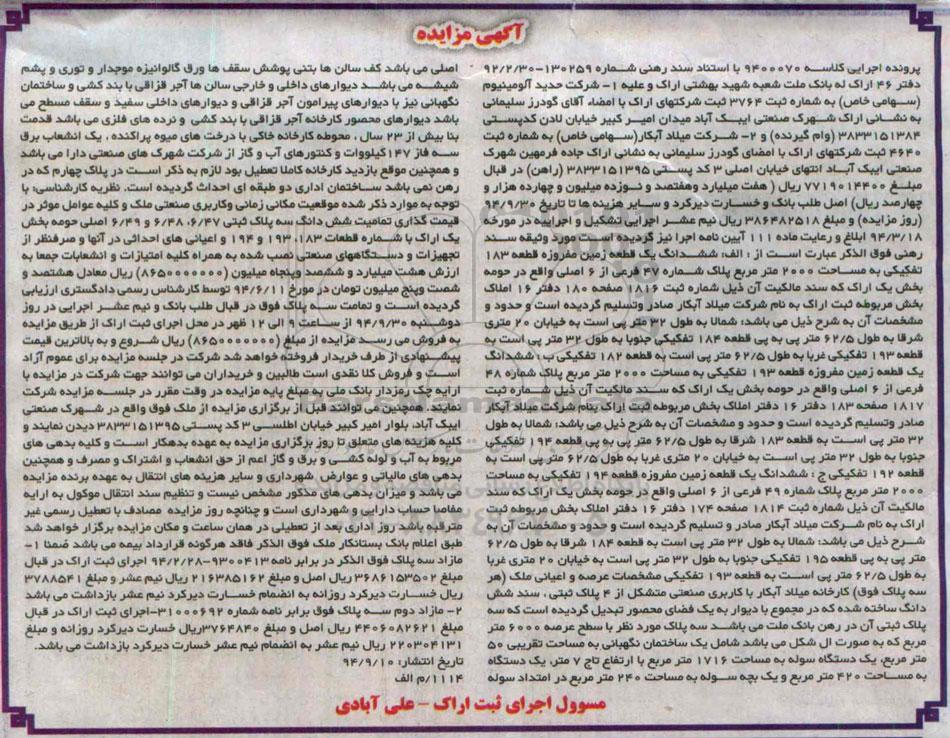 آگهی مزایده
پرونده اجرایی کلاسه ۹۴۰۰۰۷۰ با استناد سند رهنی شماره ۱۳۰۲۵۹-۹۲/۲/۳۰
دفتر ۴۶ اراک له بانک ملت شعبه شهید بهشتی اراک و علیه ۱- شرکت حدید آلومینیوم
(سهامی خاص) به شماره ثبت ۳۷۶۴ ثبت شرکتهای اراک با امضاء آقای گودرز سلیمانی
به نشانی اراک شهرک صنعتی ایبک آباد میدان امیر کبیر خیابان لادن کدپستی
۳۸۳۳۱۵۱۳۸۴ (وام گیرنده) و ۲- شرکت میلاد آبکار(سهامی خاص) به شماره ثبت
۴۶۴۰ ثبت شرکتهای اراک با امضای گودرز سلیمانی به نشانی اراک جاده فرمهین شهرک
صنعتی ایبک آباد انتهای خیابان اصلی ۳ کد پستی ۳۸۳۳۱۵۱۳۹۵ (راهن) در قبال
مبلغ ۷۷۱۹۰۱۴۴۰۰ ریال ( هفت میلیارد وهفتصد و نوزده میلیون و چهارده هزار و
چهارصد ریال) اصل طلب بانک و خسارت دیرکرد و سایر هزینه ها تا تاریخ ۹۴/۹/۳۰
(روز مزایده) و مبلغ ۳۸۶۴۸۲۵۱۸ ریال نیم عشر اجرایی تشکیل و اجراییه در مورخه
۹۴/۳/۱۸ ابلاغ و رعایت ماده ۱۱۱ آیین نامه اجرا نیز گردیده است مورد وثیقه سند
رهنی فوق الذکر عبارت است از : الف: ششدانگ یک قطعه زمین مفروزه قطعه ۱۸۳
تفکیکی به مساحت ۲۰۰۰ متر مربع پلاک شماره ۴۷ فرعی از ۶ اصلی واقع در حومه
بخش یک اراک که سند مالکیت آن ذیل شماره ثبت ۱۸۱۶ صفحه ۱۸۰ دفتر ۱۶ املاک
بخش مربوطه ثبت اراک به نام شرکت میلاد آبکار صادر وتسلیم گردیده است و حدود و
مشخصات آن به شرح ذیل می باشد: شمالا به طول ۳۲ متر پی است به خیابان ۲۰ متری
شرقا به طول ۶۲/۵ متر پی به پی قطعه ۱۸۴ تفکیکی جنوبا به طول ۳۲ متر پی است به
قطعه ۱۹۳ تفکیکی غربا به طول ۶۲/۵ متر پی است به قطعه ۱۸۲ تفکیکی ب: ششدانگ
یک قطعه زمین مفروزه قطعه ۱۹۳ تفکیکی به مساحت ۲۰۰۰ متر مربع پلاک شماره ۴۸
فرعی از ۶ اصلی واقع در حومه بخش یک اراک که سند مالکیت آن ذیل شماره ثبت
۱۸۱۷ صفحه ۱۸۳ دفتر ۱۶ دفتر املاک بخش مربوطه ثبت اراک بنام شرکت میلاد آبکار
صادر وتسلیم گردیده است و حدود و مشخصات آن به شرح ذیل می باشد: شمالا به طول
۳۲ متر پی است به قطعه ۱۸۳ شرقا به طول ۶۲/۵ متر پی به پی قطعه ۱۹۴ تفکیکی
جنوبا به طول ۳۲ متر پی است به خیابان ۲۰ متری غربا به طول ۶۲/۵ متر پی است به
قطعه ۱۹۲ تفکیکی ج : ششدانگ یک قطعه زمین مفروزه قطعه ۱۹۴ تفکیکی به مساحت
۲۰۰۰ متر مربع پلاک شماره ۴۹ فرعی از ۶ اصلی واقع در حومه بخش یک اراک که سند
مالکیت آن ذیل شماره ثبت ۱۸۱۴ صفحه ۱۷۴ دفتر ۱۶ دفتر املاک بخش مربوطه ثبت
اراک به نام شرکت میلاد آبکار صادر و تسلیم گردیده است و حدود و مشخصات آن به
شرح ذیل می باشد: شمالا به طول ۳۲ متر پی است به قطعه ۱۸۴ شرقا به طول ۶۲/۵
متر پی به پی قطعه ۱۹۵ تفکیکی جنوبا به طول ۳۲ متر پی است به خیابان ۲۰ متری غربا
به طول ۶۲/۵ متر پی است به قطعه ۱۹۳ تفکیکی مشخصات عرصه و اعیانی ملک (هر
سه پلاک فوق) کارخانه میلاد آبکار با کاربری صنعتی متشکل از ۴ پلاک ثبتی ، سند شش
دانگ ساخته شده که در مجموع با دیوار به یک فضای محصور تبدیل گردیده است که سه
پلاک ثبتی آن در رهن بانک ملت می باشد سه پلاک مورد نظر با سطح عرصه ۶۰۰۰ متر
مربع که به صورت ال شکل می باشد شامل یک ساختمان نگهبانی به مساحت تقریبی ۵۰
متر مربع، یک دستگاه سوله به مساحت ۱۷۱۶ متر مربع با ارتفاع تاج ۷ متر، یک دستگاه
به مساحت ۴۲۰ متر مربع و یک بچه سوله به مساحت ۲۴۰ متر مربع در امتداد سوله
اصلی می باشد کف سالن ها بتنی پوشش سقف ها ورق گالوانیزه موجدار و توری و پشم
شیشه می باشد دیوارهای داخلی و خارجی سالن ها آجر قزاقی با بند کشی و ساختمان
نگهبانی نیز با دیوارهای پیرامون آجر قزاقی و دیوارهای داخلی سفید و سقف مسطح می
باشد دیوارهای محصور کارخانه آجر قزاقی با بند کشی و نرده های فلزی می باشد قدمت
بنا بیش از ۲۳ سال ، محوطه کارخانه خاکی با درخت های میوه پراکنده ، یک انشعاب برق
سه فاز ۱۴۷کیلووات و کنتورهای آب و گاز از شرکت شهرک های صنعتی دارا می باشد
و همچنین موقع بازدید کارخانه کاملا تعطیل بود لازم به ذکر است در پلاک چهارم که در
رهن نمی باشد ساختمان اداری دو طبقه ای احداث گردیده است. نظریه کارشناسی: با
توجه به موارد ذکر شده موقعیت مکانی زمانی وکاربری صنعتی ملک و کلیه عوامل موثر در
قیمت گذاری تمامیت شش دانگ سه پلاک ثبتی ۶/۴۷، ۶/۴۸ و ۶/۴۹ اصلی حومه بخش
یک اراک با شماره قطعات ۱۸۳، ۱۹۳ و ۱۹۴ و اعیانی های احداثی در آنها و صرفنظر از
تجهیزات و دستگاههای صنعتی نصب شده به همراه کلیه امتیازات و انشعابات جمعا به
ارزش هشت میلیارد و ششصد وپنجاه میلیون (۸۶۵۰۰۰۰۰۰۰) ریال معادل هشتصد و
شصت وپنج میلیون تومان در مورخ ۹۴/۶/۱۱ توسط کارشناس رسمی دادگستری ارزیابی
گردیده است و تمامت سه پلاک فوق در قبال طلب بانک و نیم عشر اجرایی در روز
دوشنبه ۹۴/۹/۳۰ از ساعت ۹ الی ۱۲ ظهر در محل اجرای ثبت اراک از طریق مزایده
به فروش می رسد مزایده از مبلغ (۸۶۵۰۰۰۰۰۰۰) ریال شروع و به بالاترین قیمت
پیشنهادی از طرف خریدار فروخته خواهد شد شرکت در جلسه مزایده برای عموم آزاد
است و فروش کلا نقدی است طالبین و خریداران می توانند جهت شرکت در مزایده با
ارایه چک رمزدار بانک ملی به مبلغ پایه مزایده در وقت مقرر در جلسه مزایده شرکت
نمایند. همچنین می توانند قبل از برگزاری مزایده از ملک فوق واقع در شهرک صنعتی
ایبک آباد، بلوار امیر کبیر خیابان اطلسی ۳ کد پستی ۳۸۳۳۱۵۱۳۹۵ دیدن نمایند و
کلیه هزینه های متعلق تا روز برگزاری مزایده به عهده بدهکار است و کلیه بدهی های
مربوط به آب و لوله کشی و برق و گاز اعم از حق انشعاب و اشتراک و مصرف و همچنین
بدهی های مالیاتی و عوارض شهرداری و سایر هزینه های انتقال به عهده برنده مزایده
می باشد و میزان بدهی های مذکور مشخص نیست و تنظیم سند انتقال موکول به ارایه
مفاصا حساب دارایی و شهرداری است و چنانچه روز مزایده مصادف با تعطیل رسمی غیر
مترقبه باشد روز اداری بعد از تعطیلی در همان ساعت و مکان مزایده برگزار خواهد شد
طبق اعلام بانک بستانکار ملک فوق الذکر فاقد هرگونه قرارداد بیمه می باشد ضمنا ۱-
مازاد سه پلاک فوق الذکر در برابر نامه ۹۳۰۰۴۱۳-۹۴/۲/۲۸ اجرای ثبت اراک در قبال
مبلغ ۳۶۸۶۱۵۳۵۰۲ ریال اصل و مبلغ ۲۱۶۳۸۵۱۶۲ ریال نیم عشر و مبلغ ۳۷۸۸۵۴۱
ریال خسارت دیرکرد روزانه به انضمام خسارت دیرکرد نیم عشر بازداشت می باشد
۲- مازاد دوم سه پلاک فوق برابر نامه شماره ۳۱۰۰۰۶۹۲-اجرای ثبت اراک در قبال
مبلغ ۴۴۰۶۰۸۲۶۲۱ ریال اصل و مبلغ ۳۷۶۴۸۴۰ریال خسارت دیرکرد روزانه و مبلغ
۲۲۰۳۰۴۱۳۱ ریال نیم عشر به انضمام نیم عشر خسارت دیرکرد بازداشت می باشد.
تاریخ انتشار: ۹۴/۹/۱۰
۱۱۱۴/م الف
مسوول اجرای ثبت اراک – علی آبادی